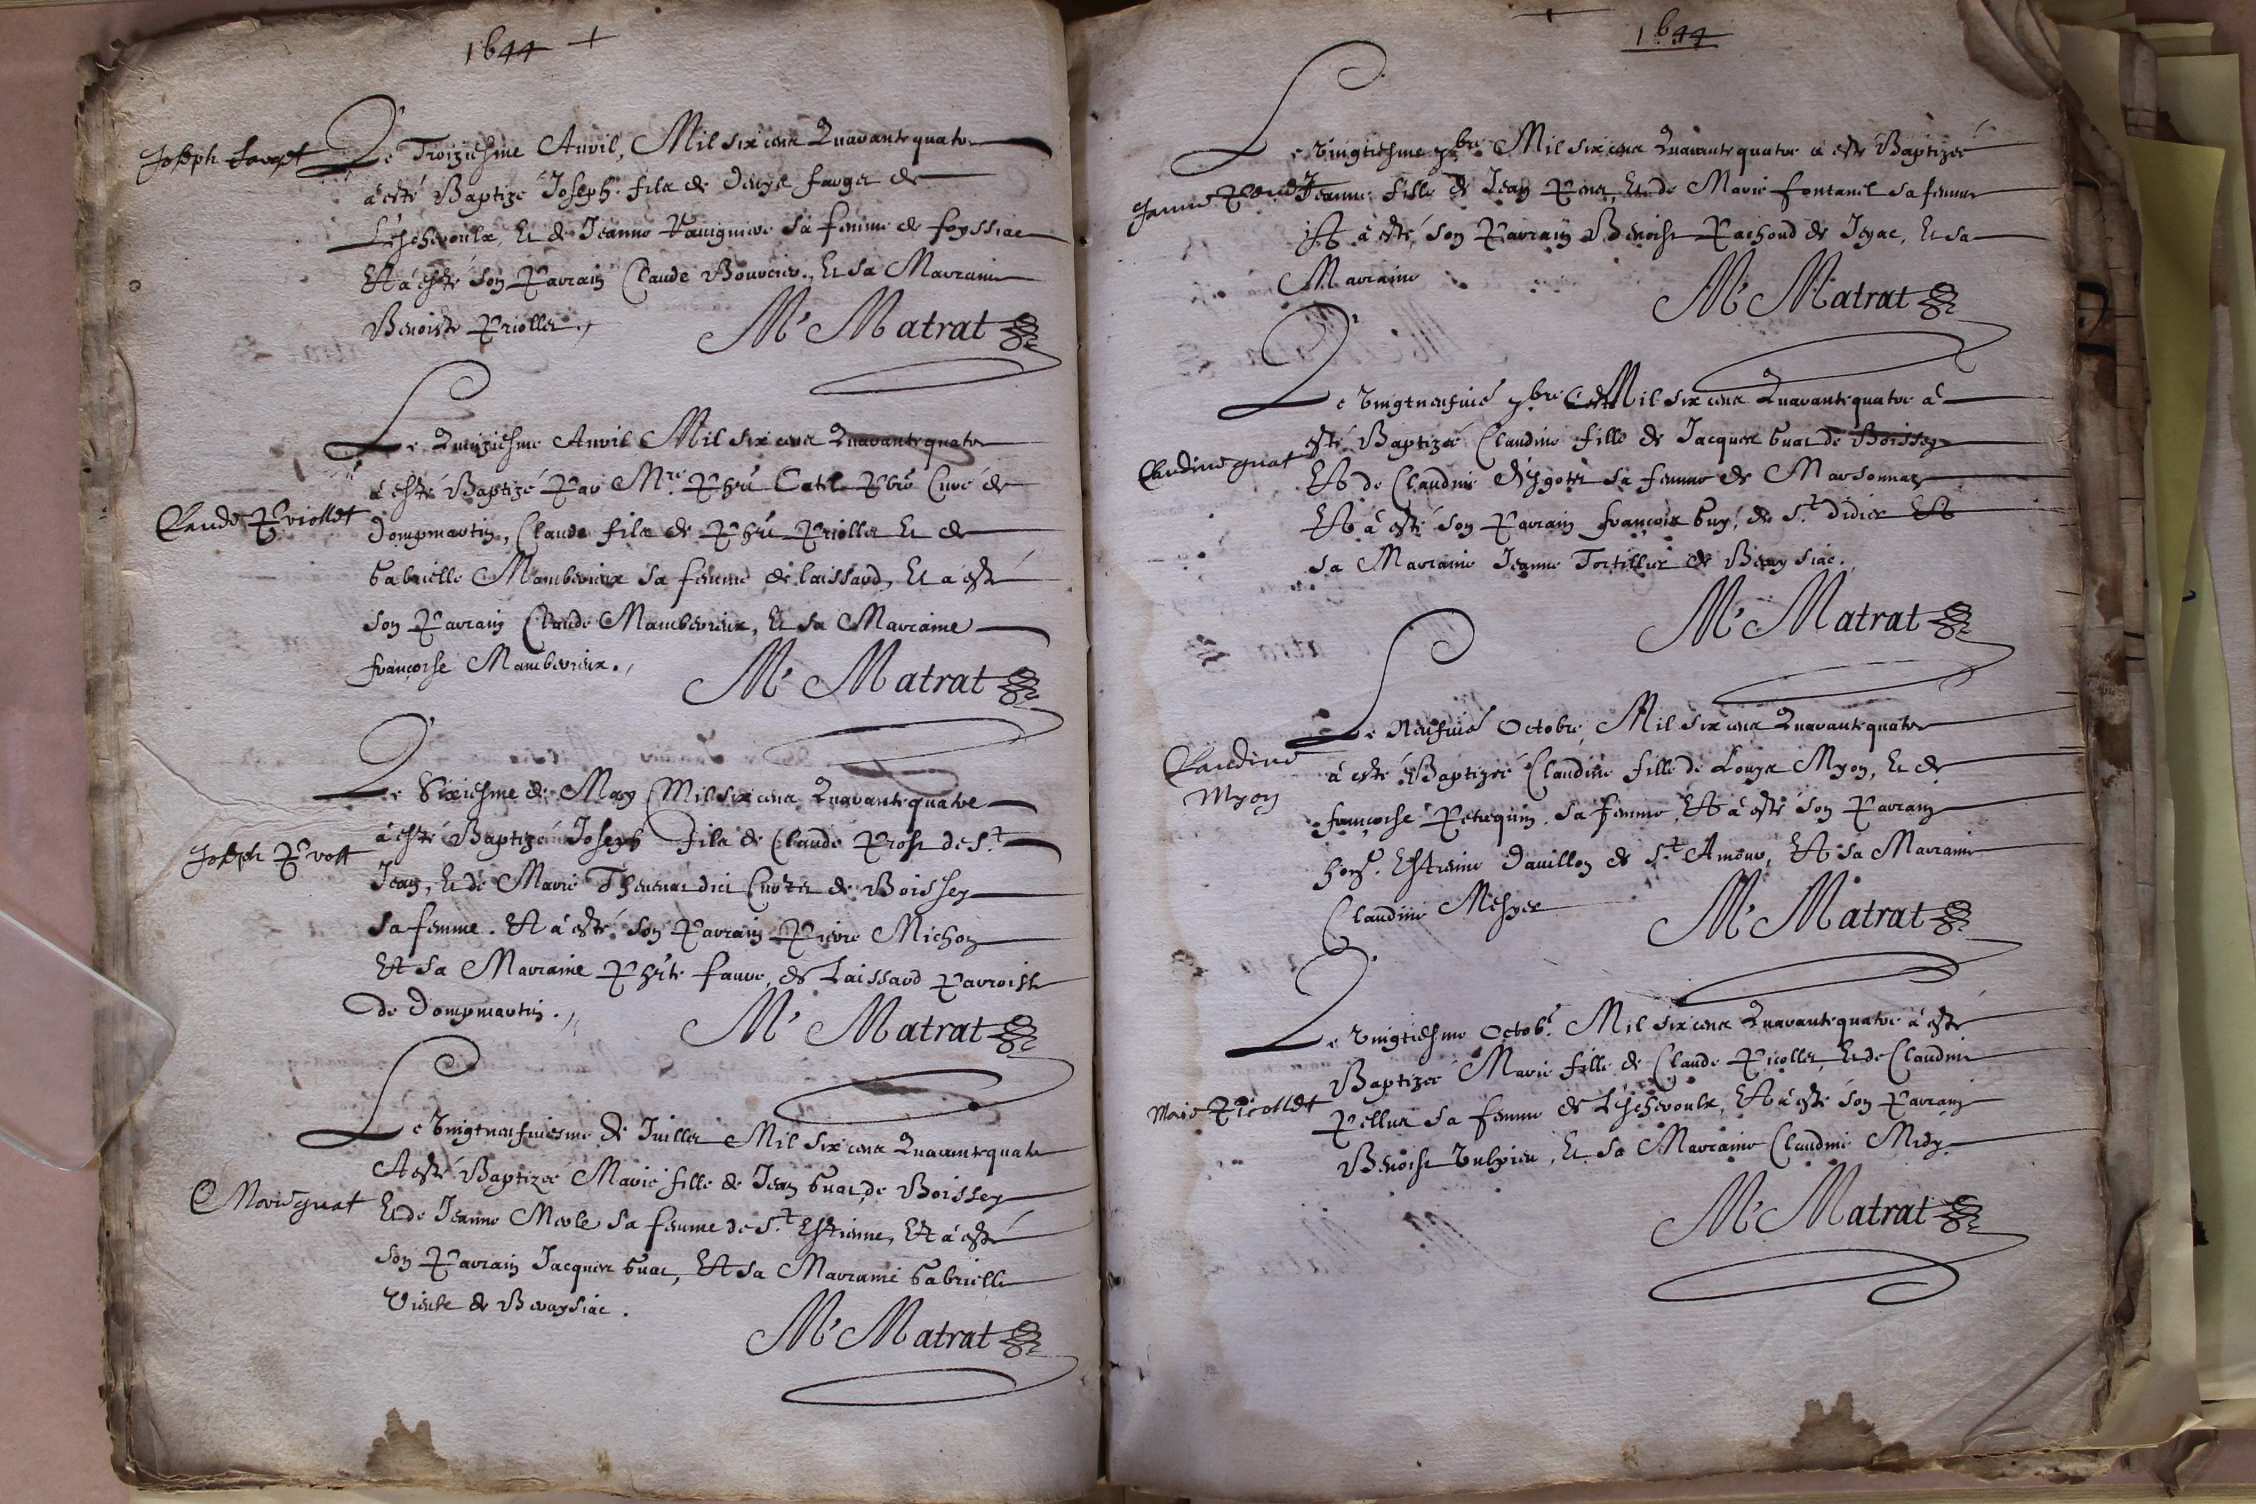 1644
Joseph
Le Troiziesme Avril, Mil six cens Quarante quatre
a esté Baptizé Joseph fils de Denys farges de
Leschevoulx, et de Jeanne sa femme de foyssiac
Et a esté son Parrain Claude Bouvier, Et sa Marraine
Benoiste Priollet.
M. Matrat
Le Quinziesme Avril Mil six cens Quarante quatre
a esté Baptizé Par Mre Phĩ Catel Pbrẽ Curé de
Claude Priollet
Dompmartin, Claude fils de Phĩ Priollet Et de
Gabrielle Mamberieux sa femme de laissard, Et a esté
son Parrain Claude Mamberieux, Et sa Marraine
françoise Mamberieux.
M. Matrat
Le Sixiesme de May Mil six cens Quarante quatre
a esté Baptizé Joseph fils de Claude Prost de St
Joseph Prost
Jean, Et de Marie Thevenat dici de Boissey
sa femme. Et a esté son Parrain Pierre Michon
Et sa Marraine faure, de Laissard Parroisse
de Dompmartin.
M. Matrat
Le Vingtneufviesme de Juillet Mil six cens Quarante quatre
A esté Baptizée Marie fille de Jean Guat, de Boissey
Marie guat
Et de Jeanne Merle sa femme de St Estienne, Et a esté
son Parrain Jacques Guat, Et sa Marraine Gabrielle
de Beaysiac.
M. Matrat
1644
Le Vingtiesme 7bre Mil six cens Quarante quatre a esté Baptizée
Jeanne fille de Jean Et de Marie fontanel sa femme
Et a esté son Parrain Benoist Pachoud de Jayac, Et sa
Marraine
M. Matrat
Le Vingtneufvié 7bre Mil six cens Quarante quatre a
esté Baptizée Claudine fille de Jacques Guat de Boissey
Claudine guat
Et de Claudine sa femme de Marsonnas
Et a esté son Parrain françois Guy, de St Didier Et
sa Marraine Jeanne de Beaysiac.
M. Matrat
Le Neufvié Octobre, Mil six cens Quarante quatre
Claudine
a esté Baptizée Claudine fille de Louys Myon, Et de
Myon
françoise Perrequin, sa femme, Et a esté son Parrain
hons. Estienne Davillon de St Amour, Et sa Marraine
Claudine
M. Matrat
Le Vingtiesme Octob. Mil six cens Quarante quatre a esté
Baptizée Marie fille de Claude Picollet, Et de Claudine
Marie Picollet
sa femme de Leschevoulx, Et a esté son Parrain
Benoist Vulpieu, Et sa Marraine Claudine
M. Matrat